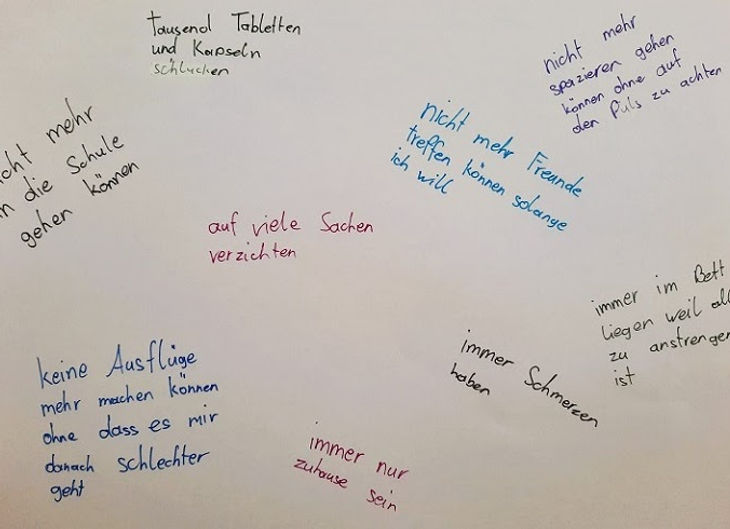 tausend Tabletten
und Kapseln
schlucken
nicht mehr
spazieren gehen
können ohne auf
den Puls zu achten
mehr
die Schule
gehen können
nicht mehr Freunde
treffen können solange
ich will
auf viele Sachen
verzichten
immer im Bett
liegen weil
zu
ist
keine Ausflüge
mehr machen können
ohne dass es mir
danach schlechter
geht
immer Schmerzen
haben
immer nur
zuhause sein